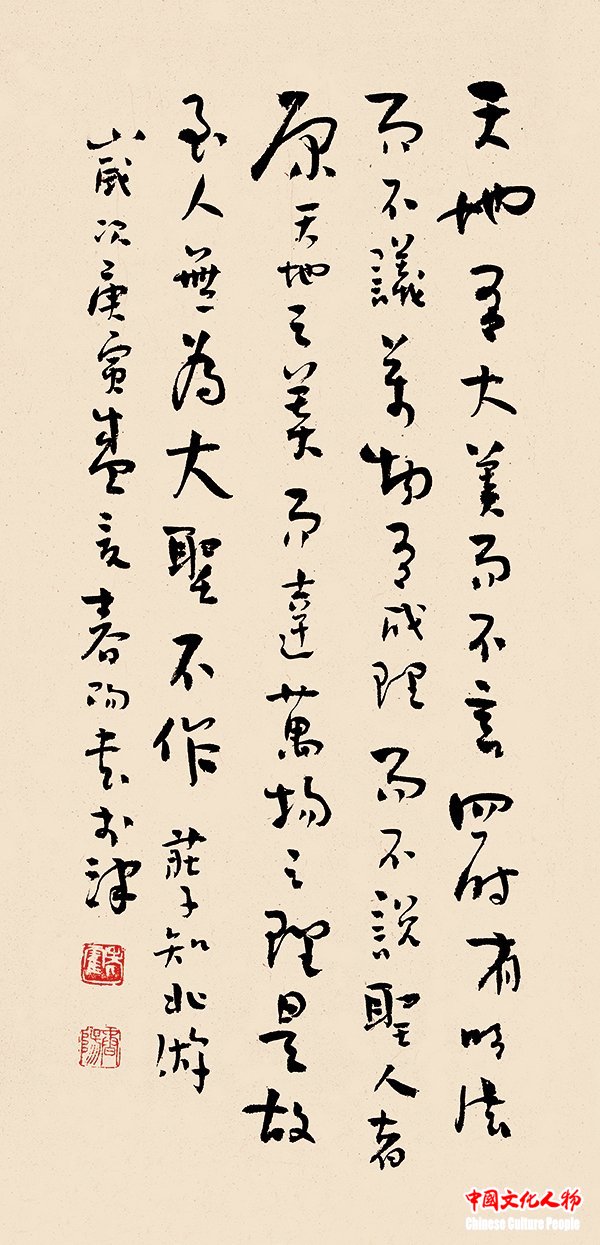 天地有大美而不言四时有明法
而不議萬物有成理而不説聖人者
原天地之美而達萬物之理是故
至人無為大聖不作 莊子知北游
歲次庚寅盛夏春陽书於津
春陽
中國文化人物
Chinese Culture People